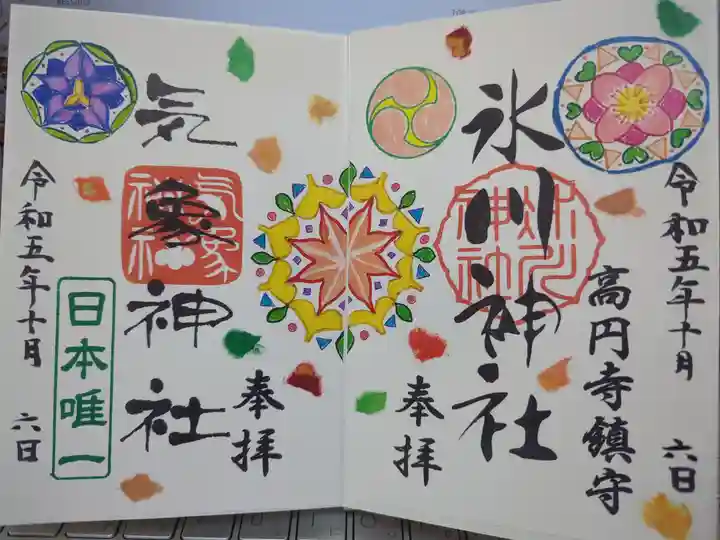 令和五年十月 六日
高円寺鎮守
氷川神社
氷川神社
奉拝
気象神社
気象神社
奉拝
日本唯一
令和五年十月 六日